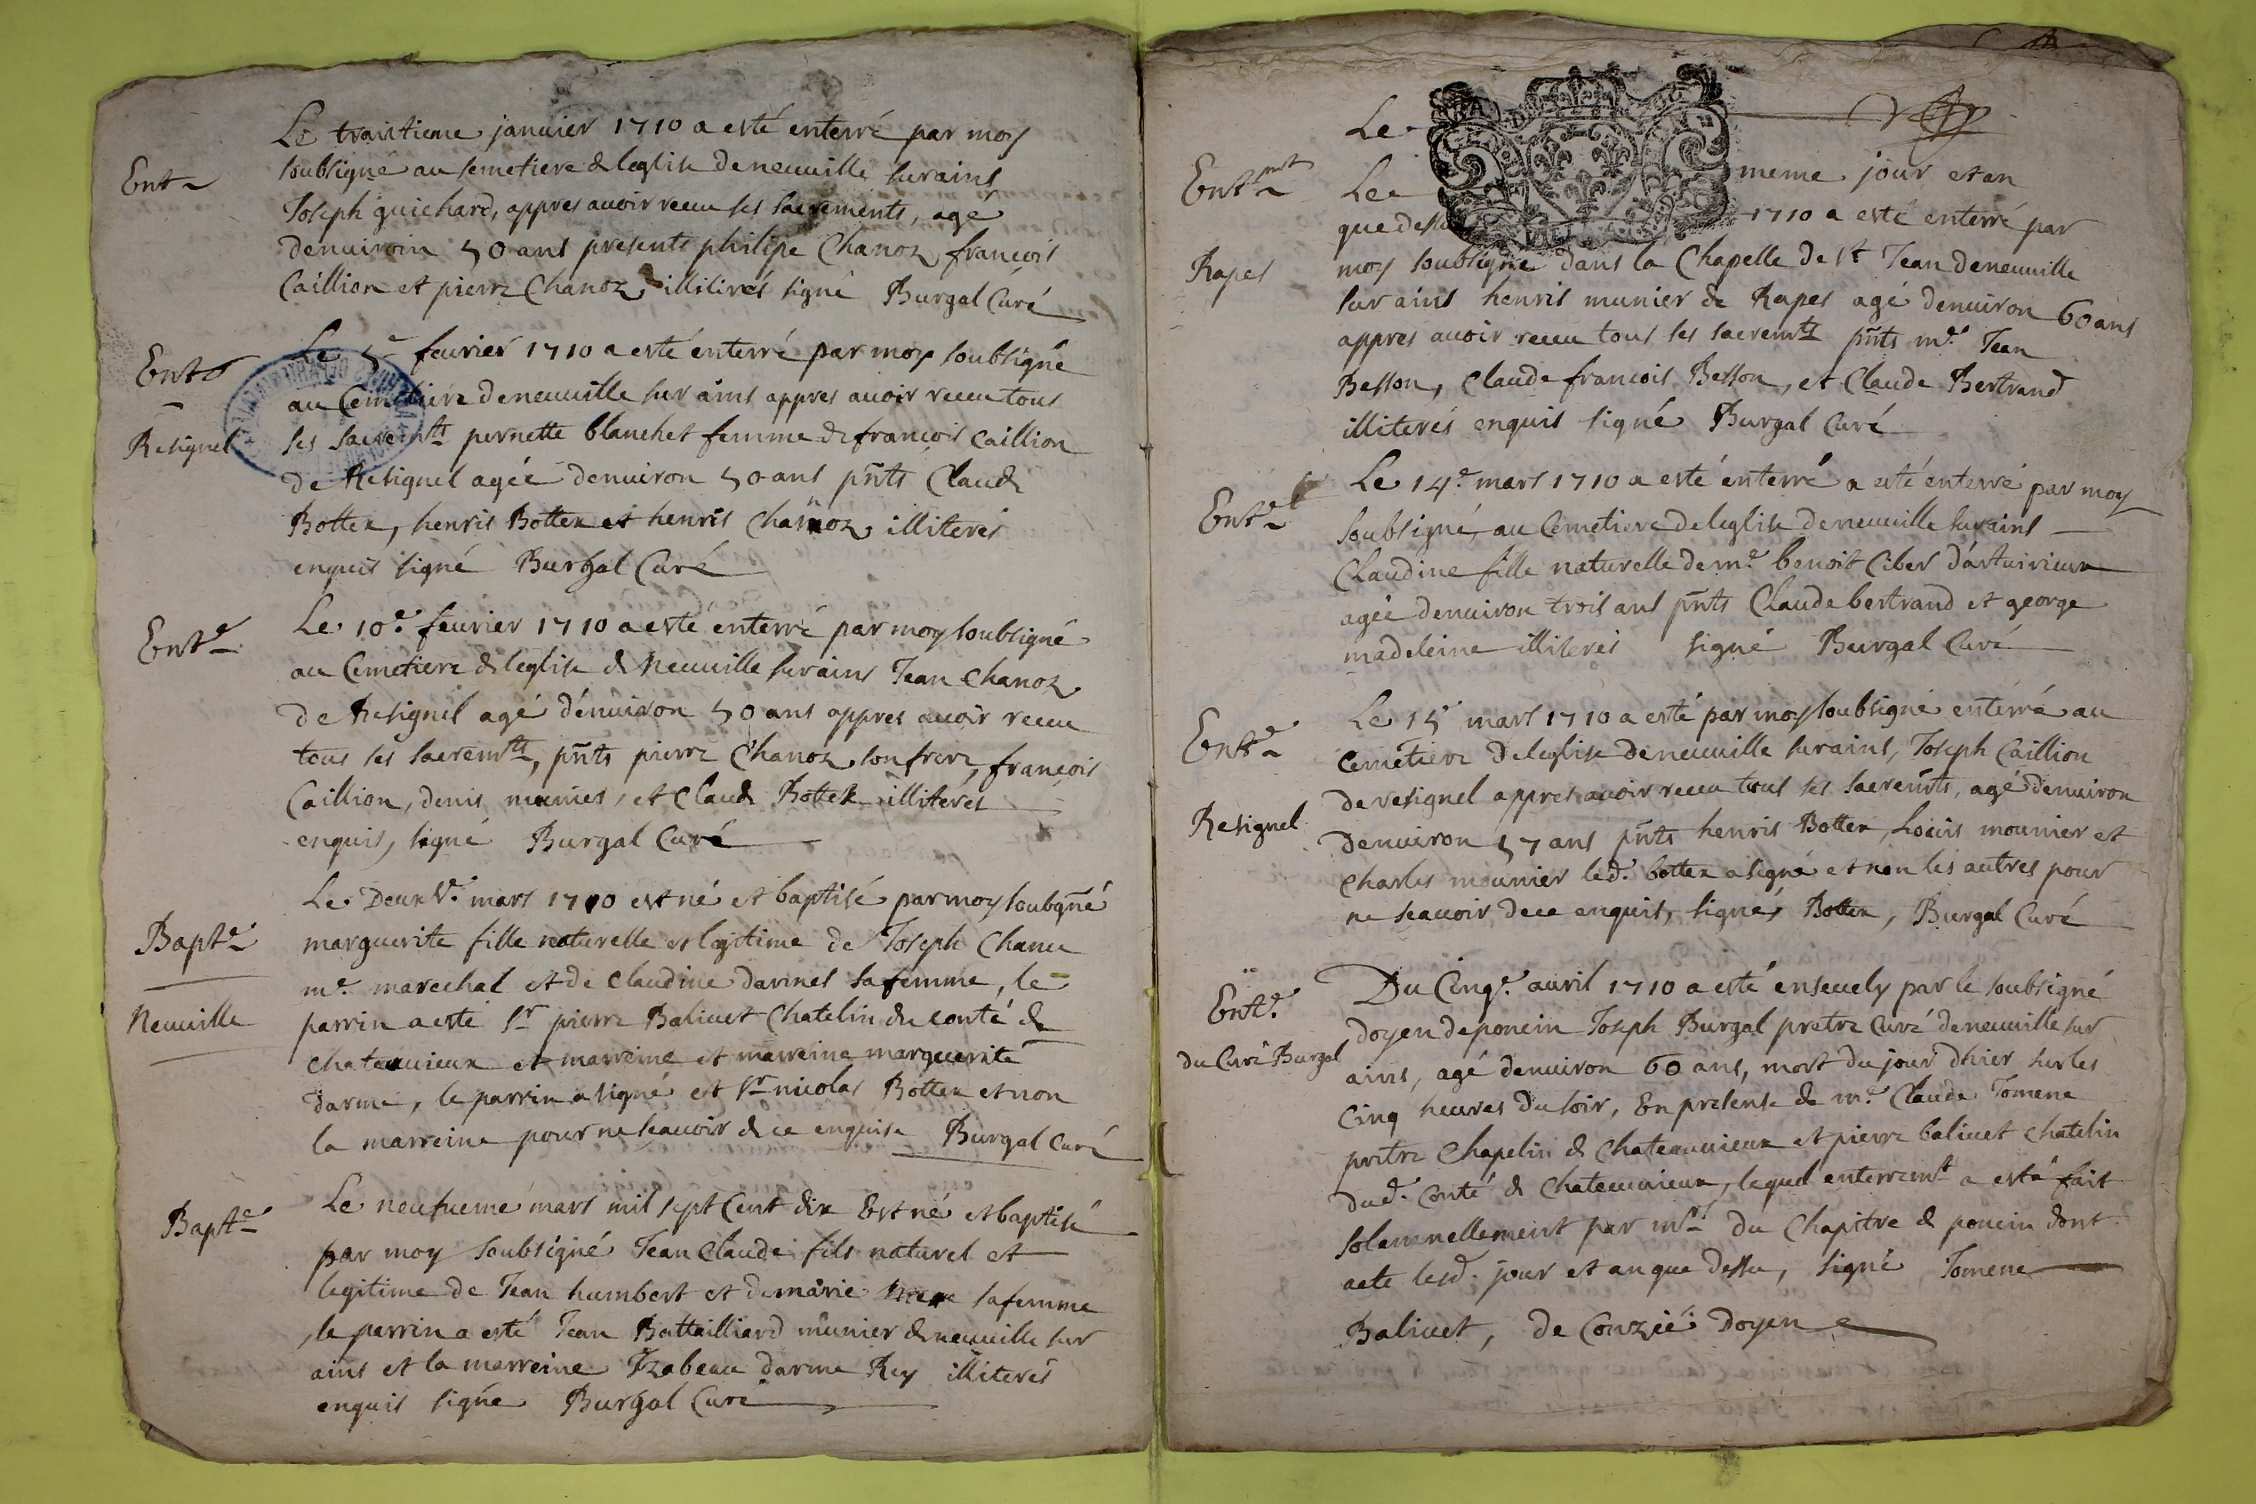 Ent
Le traistieme janvier 1710 a esté enterré par moy
soubsigné au semetiere de leglise de neuuille sur ains
Joseph guichard, appres auoir receu ses sacrements, agé
denuiroin 50 ans presents philipe Chanoz, francois
Caillion et pierre Chanoz illiterés signé Burgal Curé
Ent
Resignel
Le 5e feurier 1710 a esté enterré par moy soubsigné
au Cemetiere de neuuille sur ains appres auoir receu tous
ses sacremts pernette blanchet femme de francois Caillion
de Resignel agée denuiron 50 ans pnts Claude
Bottex, henris Bottex et henris Chanoz illiterés
enquis signé Burgal Curé
Ente
Le 10e feurier 1710 a esté enterré par moy soubsigné
au Cemetiere de leglise de Neuuille sur ains Jean Chanoz
de Resignel agé d'enuiron 50 ans appres auoir receu
tous ses sacremts, pnts pierre Chanoz son frere, francois
Caillion, denis munier, et Claude Bottex illiterés
enquis, signé Burgal Curé
Bapte
Neuuille
Le Deuxe mars 1710 est né et baptisé par moy soubgné
marguerite fille naturelle et legitime de Joseph Chanu
me marechal et de Claudine darmes sa femme, le
parrin a esté sr pierre Baliuet Chatelin du conté de
Chateauuieux et marreine et marreine marguerite
darme, le parrin a signé et sr nicolas Bottex et non
la marreine pour ne scauoir de ce enquise Burgal Curé
Bapte
Le neufueme mars mil sept Cent dix Est né et baptisé
par moy soubsigné Jean Claude fils naturel et
legitime de Jean humbert et de marie sa femme
le parrin a esté Jean Battailliard munier de neuuille sur
ains et la marreine Izabeau darme Rey illiterés
enquis signé Burgal Curé
Le
Entmt
Rapes
Le meme jour et an
que dessu 1710 a esté enterré par
moy soubsigné dans la Chapelle de st Jean de neuuille
sur ains henris munier de Rapes agé denuiron 60 ans
appres auoir receu tous ses sacremts pnts me Jean
Besson, Claude francois Besson, et Claude Bertrand
illiterés enquis signé Burgal Curé
Ente
Le 14e mars 1710 a esté enterré a esté enterré par moy
soubsigné, au Cemetiere de leglise de neuuille sur ains
Claudine fille naturelle de me benoit Ciber d'artuirieux
agée denuiron trois ans pnts Claude bertrand et george
madeleine illiterés signé Burgal Curé
Ente
Resignel
Le 15 mars 1710 a esté par moy soubsigné enterré au
Cemetiere de leglise de neuuille sur ains, Joseph Caillion
de resignel appres auoir receu tous ses sacremts, agé denuiron
denuiron 57 ans pnts henris Bottex, Louis mounier et
Charles mounier led. bottex a signé et non les autres pour
ne scauoir de ce enquis, signés Bottex, Burgal Curé
Ente
du Curé Burgal
Du Cinqe auril 1710 a esté enseuely par le soubsigné
doyen de poncin Joseph Burgal pretre Curé de neuuille sur
ains, agé denuiron 60 ans, mort du jour dhier sur les
cinq heures du soir, En presense de me Claude Tomene
pretre Chapelin de Chateauuieux et pierre baliuet chatelin
dud. Conté de Chateauuieux, lequel enterremt a esté fait
solemnellement par mrs du Chapitre de poncin dont
acte lesd. jour et an que dessu, signé Tomene
Baliuet, de Conzié Doyen